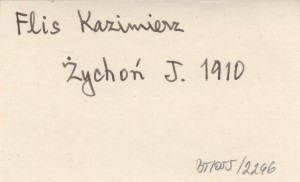 Flis Kazimierz
Żychoń J. 1910
/2296